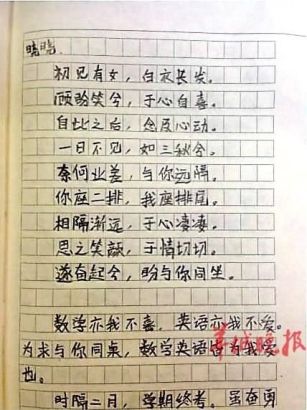 晓晓
初见有女,白衣长发。
顾盼笑兮,于心自喜。
自此之后,念及心动。
一日不见,如三秋兮。
奈何业差,与你远隔。
你座二排,我座排尾。
相隔渐远,于心凄凄。
思之笑靥,于情切切。
遂自起今,盼与你同坐。
数学亦我不喜,英语亦我不爱。
为求与你同桌,数学英语皆为我爱
也。
时隔二月,学期终考。虽奋勇
羊城晚报